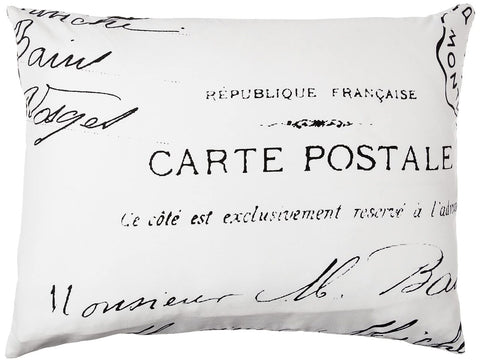 Bains
Vosges
RÉPUBLIQUE FRANÇAISE
CARTE POSTALE
Ce côté est exclusivement reservé à l'adres
Monsieur M. Ba